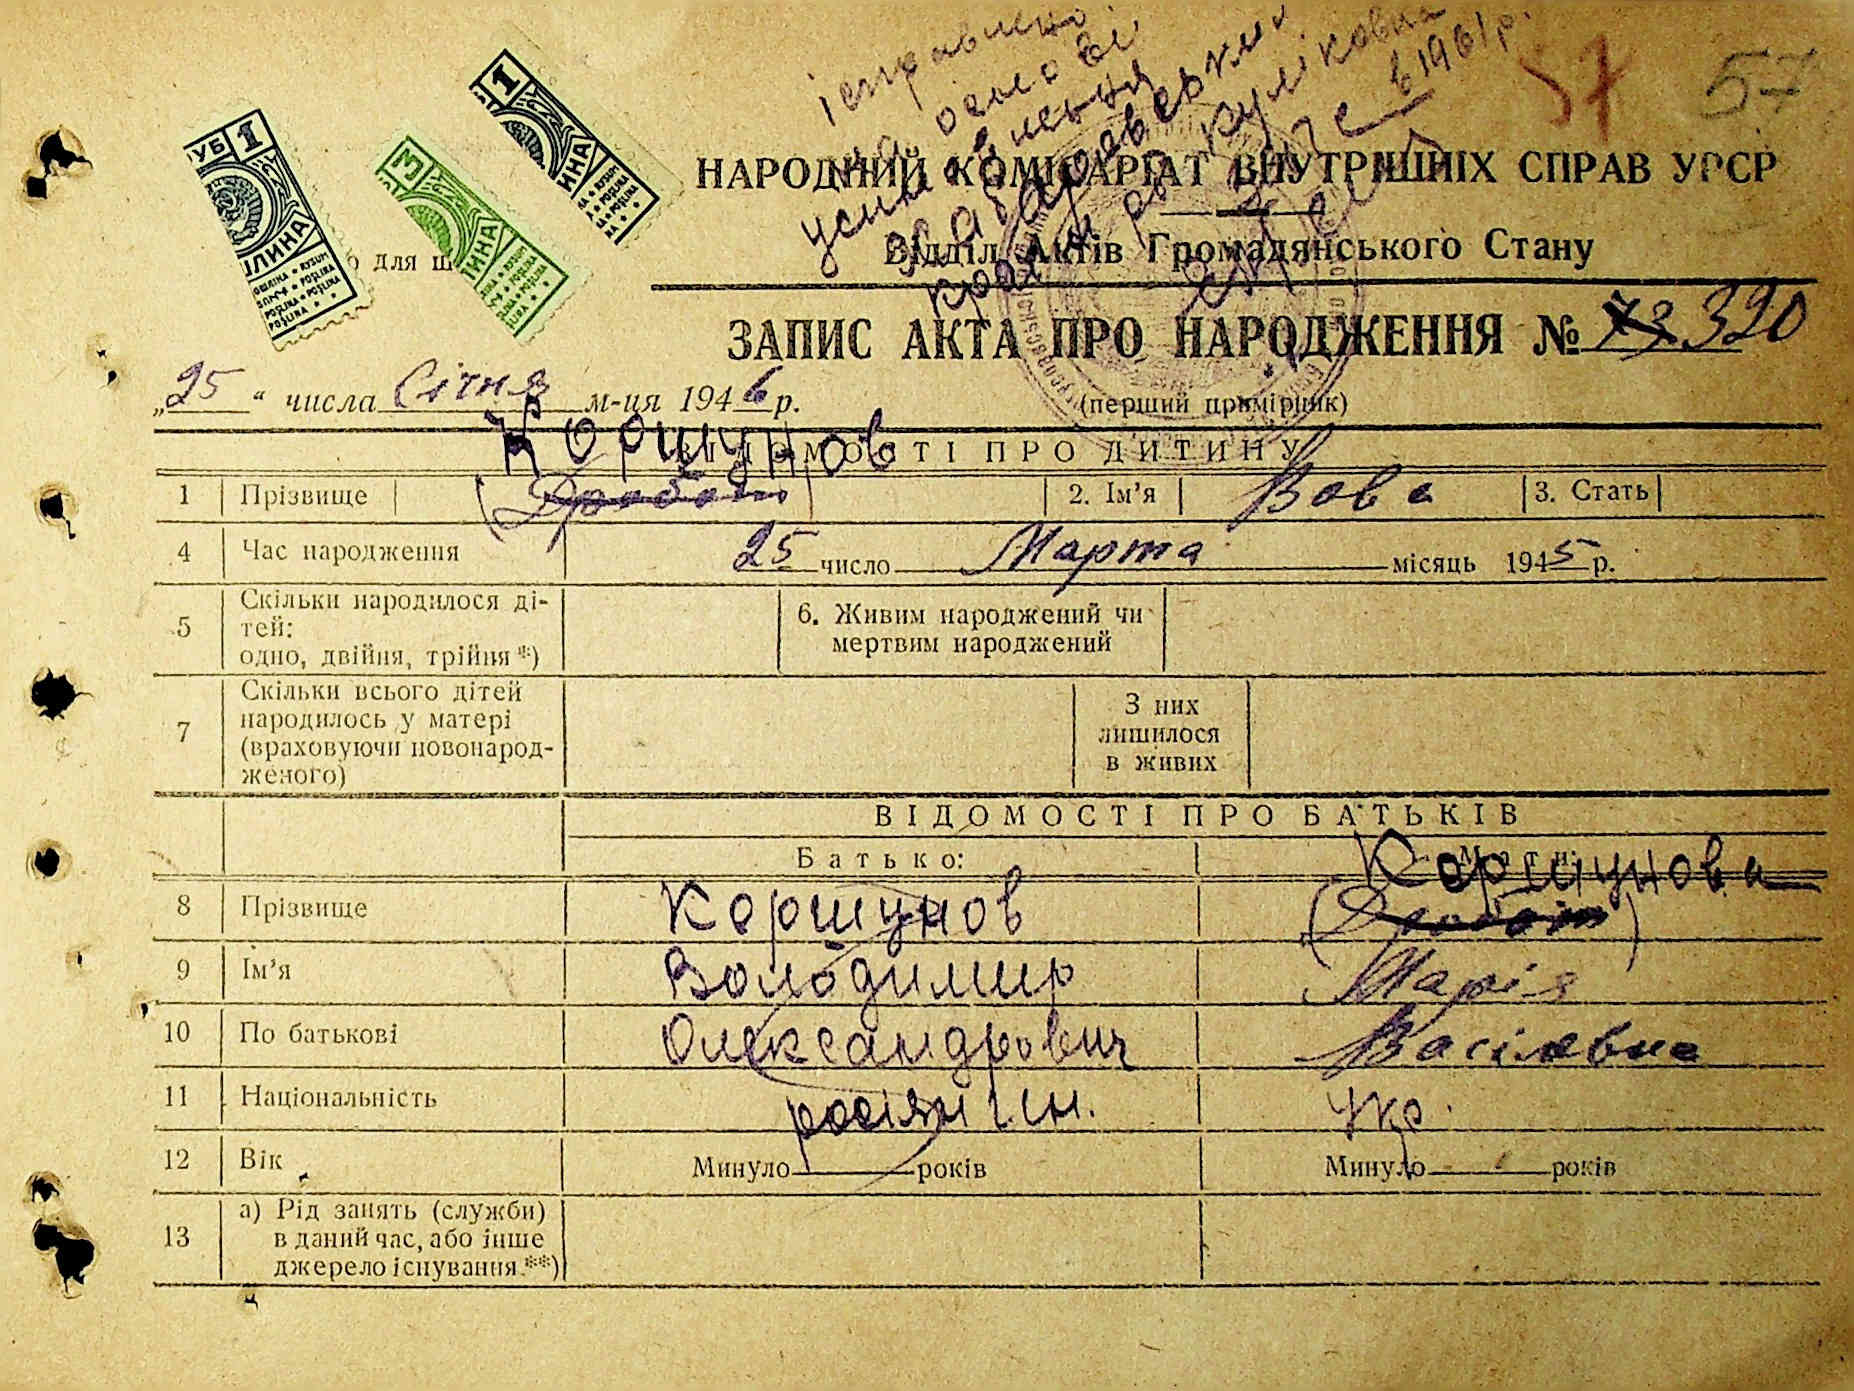 ісправлено
на основі
усиновлення
в 1961 р.
57 57
НАРОДНИЙ КОМІСАРІАТ ВНУТРІШНІХ СПРАВ УРСР
Відділ Актів Громадянського Стану
для
ЗАПИС АКТА ПРО НАРОДЖЕННЯ № 73 390
„25“ числа Січня м-ця 1946 р.
(перший примірник)
Коршунов
ВІДОМОСТІ ПРО ДИТИНУ
1 Прізвище (Дробот) 2. Ім'я Вова 3. Стать
4 Час народження 25 число Марта місяць 1945 р.
5 Скільки народилося ді-
тей:
одно, двійня, трійня *)
6. Живим народжений чи
мертвим народжений
7 Скільки всього дітей
народилось у матері
(враховуючи новонарод-
женого)
З них
лишилося
в живих
ВІДОМОСТІ ПРО БАТЬКІВ
Батько: Мати:
Коршунова
8 Прізвище Коршунов (Дробот)
9 Ім'я Володимир Марія
10 По батькові Олександрович Василевна
11 Національність росіянин. Укр.
12 Вік Минуло років Минуло років
13 а) Рід занять (служби)
в даний час, або інше
джерело існування.**)